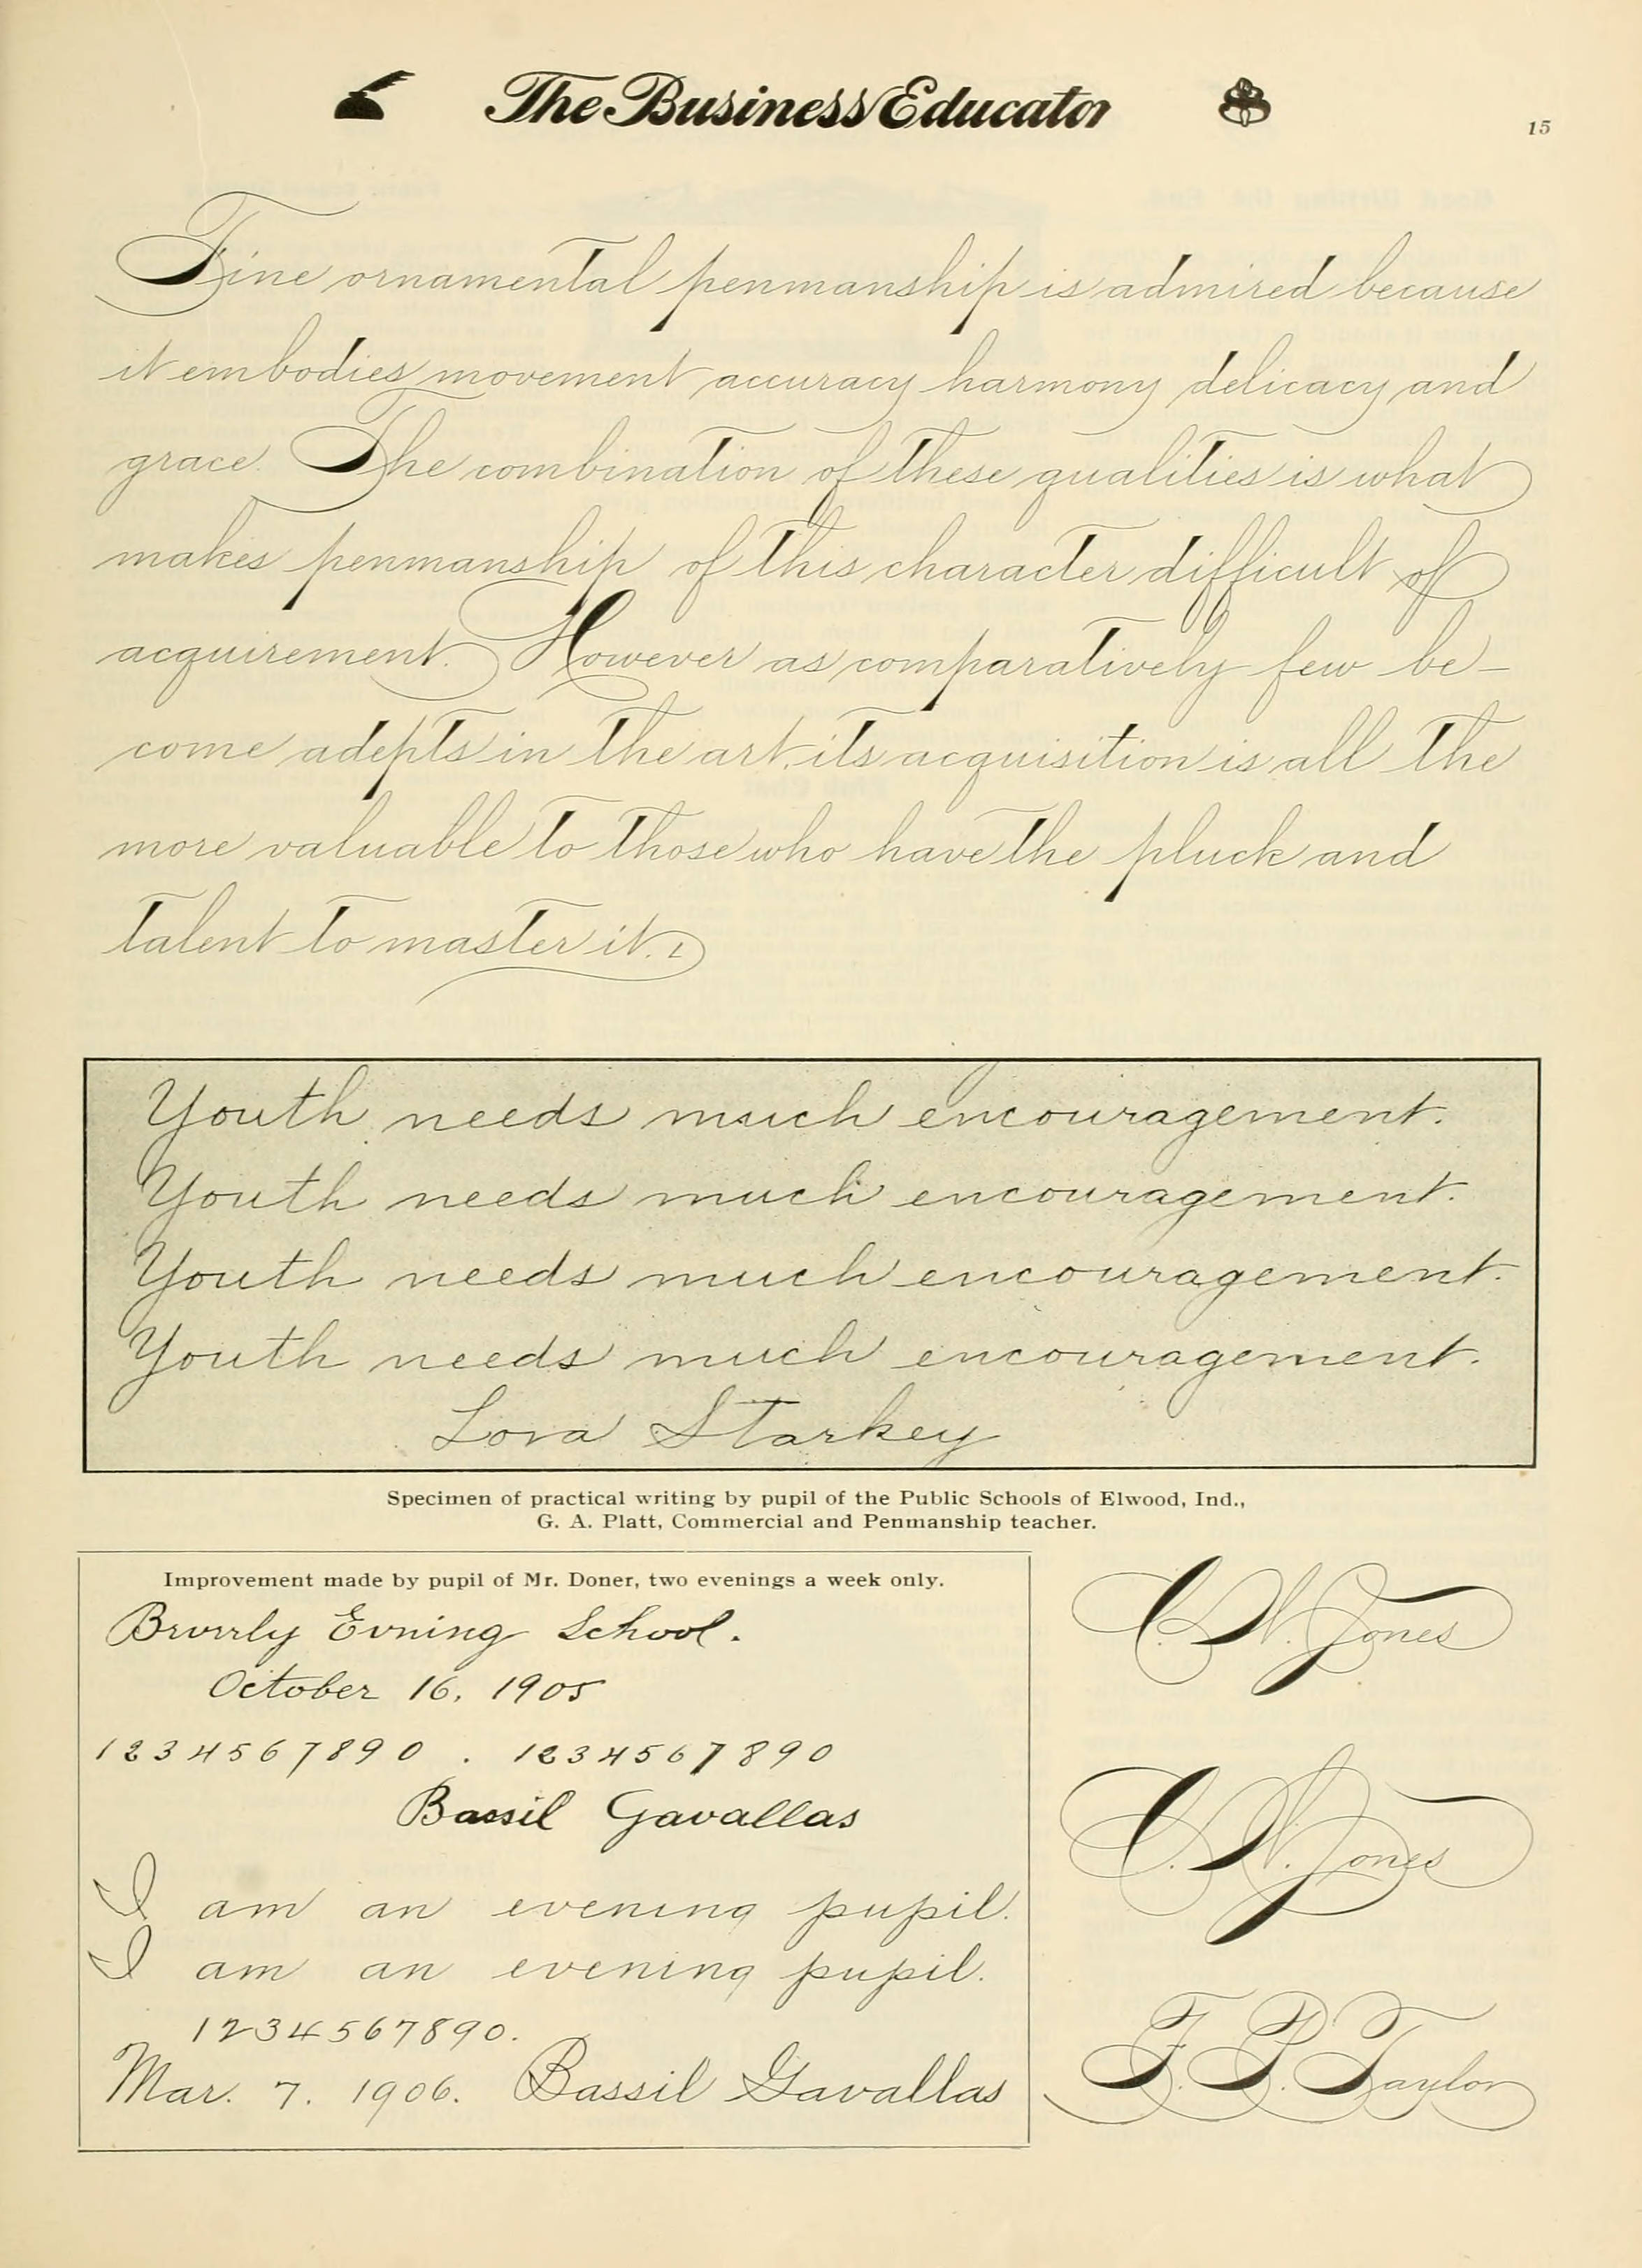 The Business Educator
15
Fine ornamental penmanship is admired because
it embodies movement accuracy harmony delicacy and
grace. The combination of these qualities is what
makes penmanship of this character difficult of
acquirement. However as comparatively few be-
come adepts in the art, its acquisition is all the
more valuable to those who have the pluck and
talent to master it.
Youth needs much encouragement.
Youth needs much encouragement.
Youth needs much encouragement.
Youth needs much encouragement.
Lova Starkey
Specimen of practical writing by pupil of the Public Schools of Elwood, Ind.,
G. A. Platt, Commercial and Penmanship teacher.
Improvement made by pupil of Mr. Doner, two evenings a week only.
Beverly Evning School.
October 16, 1905
1234567890 . 1234567890
Bassil Gavallas
I am an evening pupil.
I am an evening pupil.
1234567890.
Mar. 7. 1906. Bassil Gavallas
C. W. Jones
C. W. Jones
F. P. Taylor